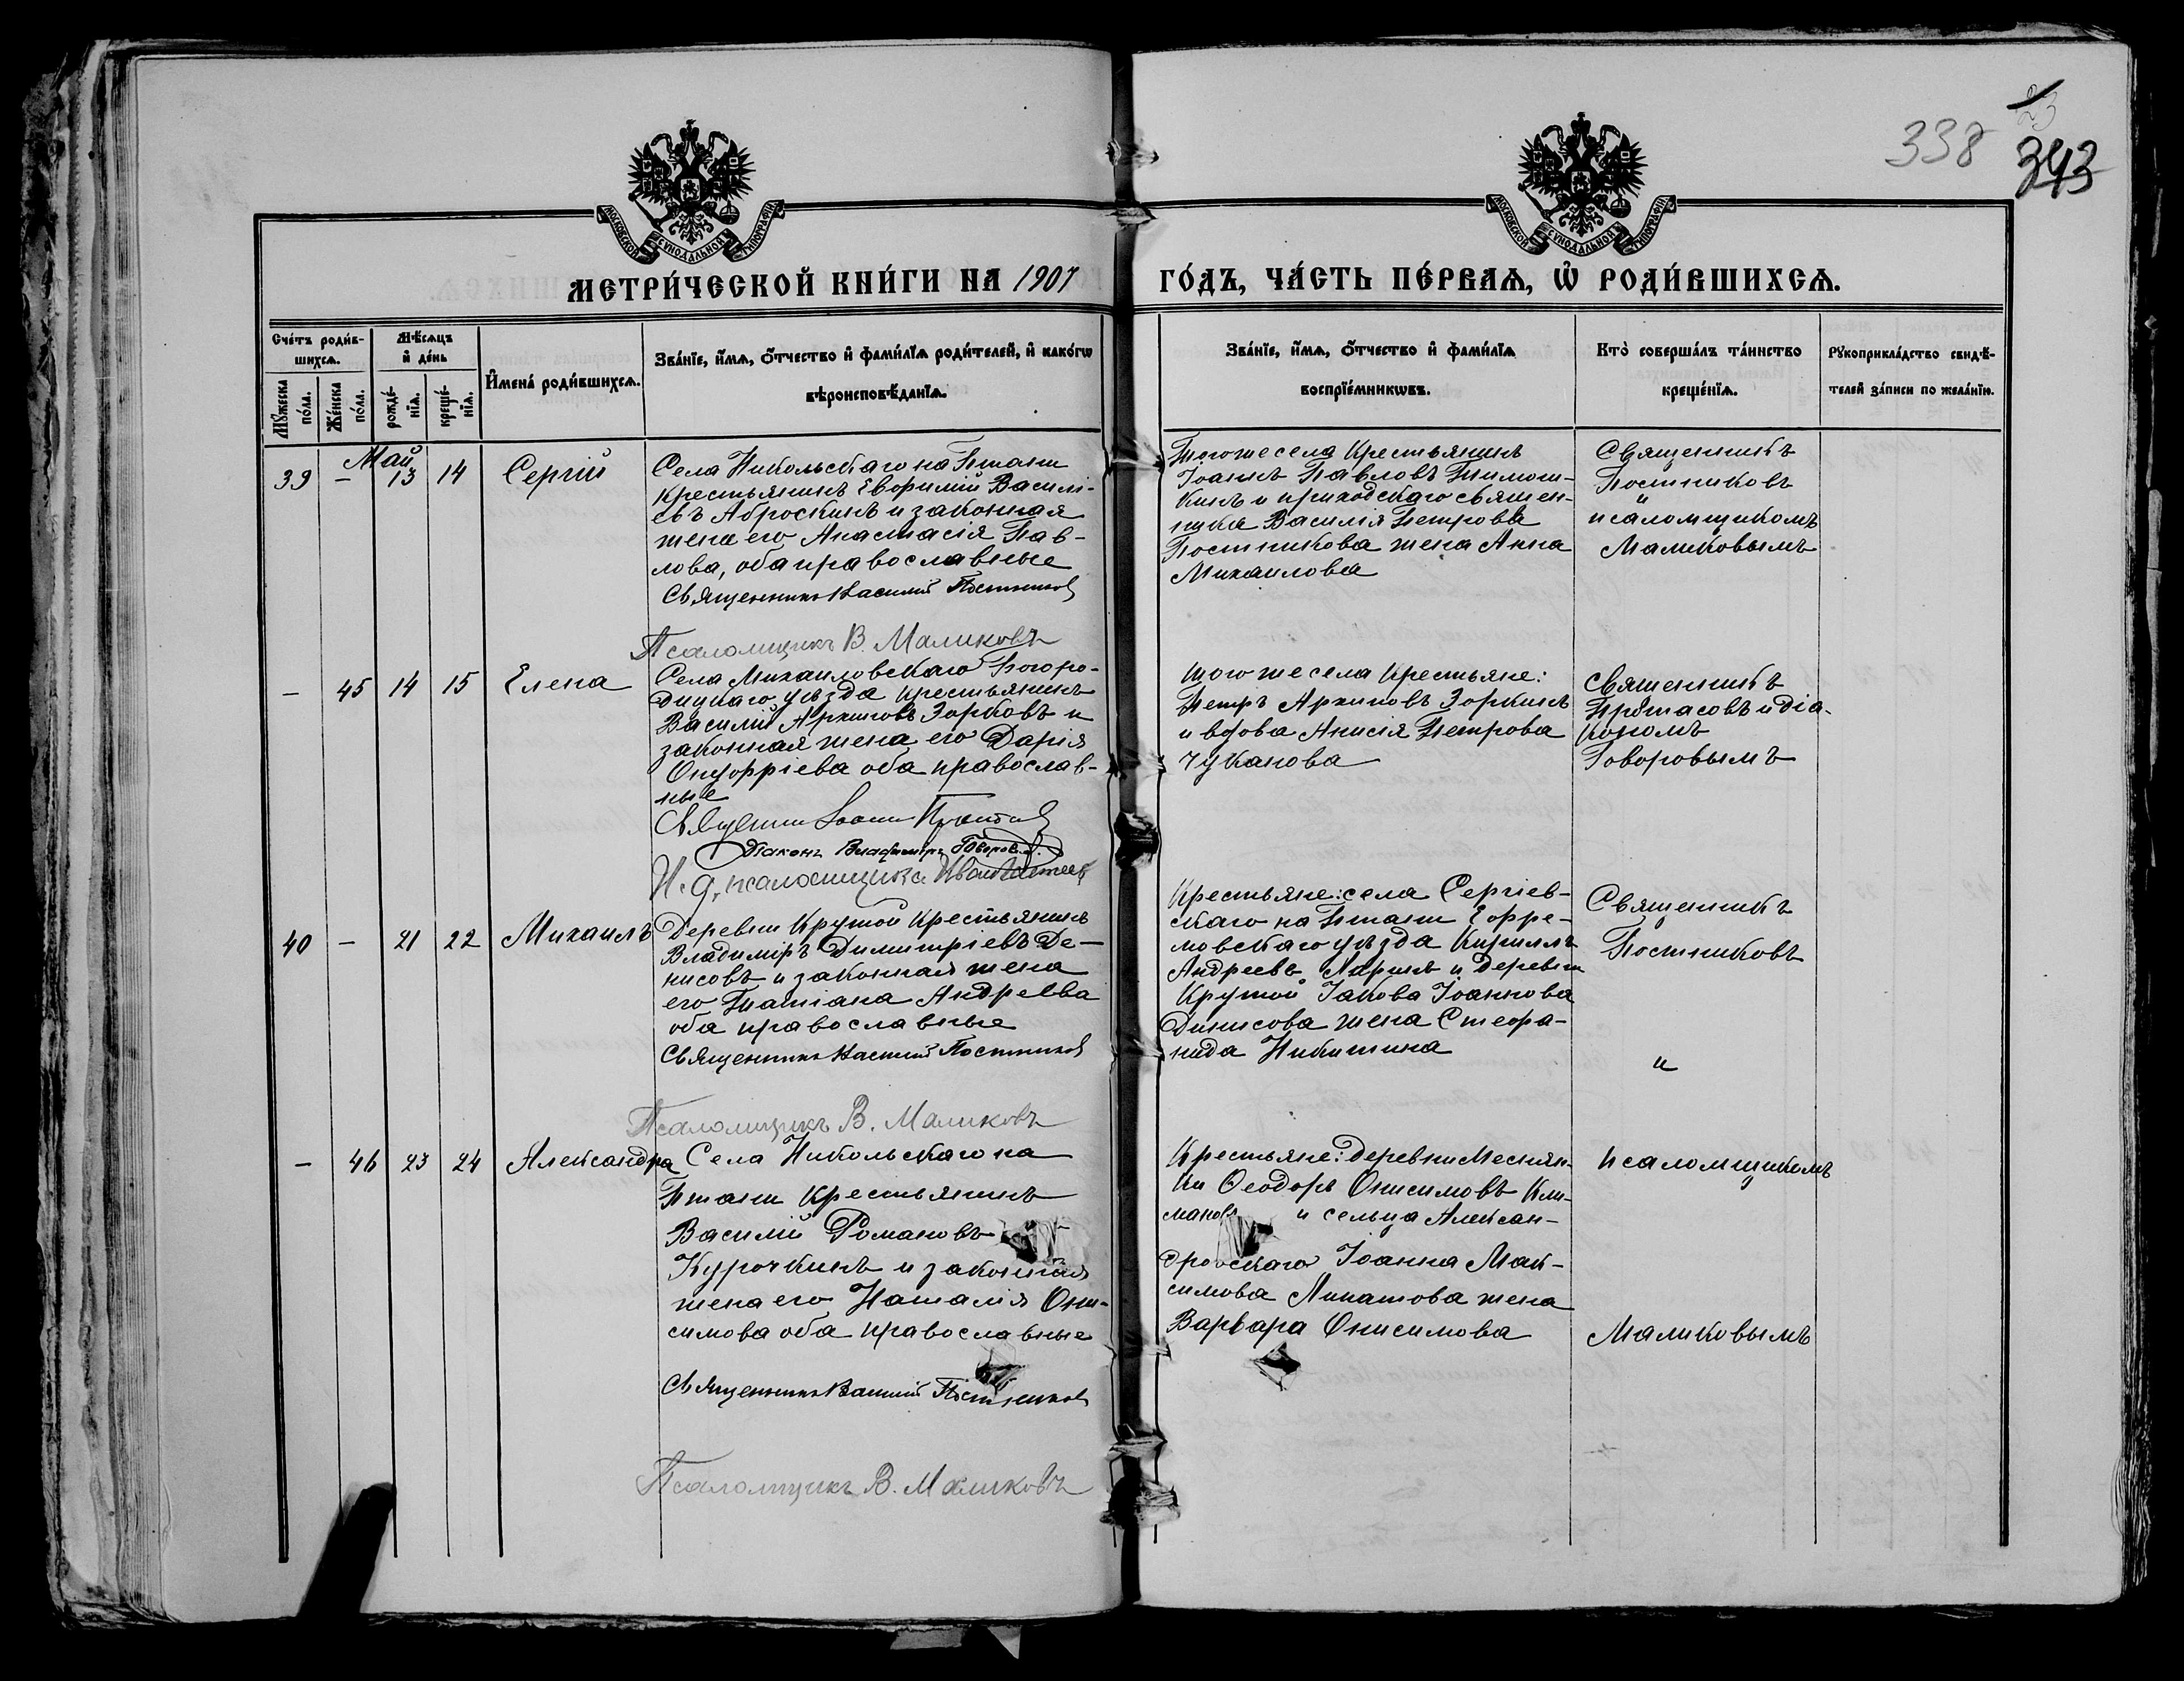 338
23
343
МОСКОВСКОЙ СѴНОДАЛЬНОЙ ТИПОГРАФІИ
МОСКОВСКОЙ СѴНОДАЛЬНОЙ ТИПОГРАФІИ
МЕТРИ́ЧЕСКОЙ КНИ́ГИ НА 1907 ГО́ДЪ, ЧА́СТЬ ПЕ́РВАЯ, Ѡ РОДИ́ВШИХСЯ.
Сче́тъ роди́в-
шихся.
Мꙋ́жеска по́ла.
Же́нска по́ла.
Мѣ́сяцъ и де́нь
рожде́-нїя.
креще́-нїя.
Имена́ роди́вшихся.
Зва́нїе, и́мя, о́тчество и фами́лїя роди́телей, и како́гѡ
вѣроисповѣ́данїя.
Зва́нїе, и́мя, о́тчество и фами́лїя
воспрїе́мникѡвъ.
Кто̀ соверша́лъ та́инство
креще́нїя.
Рꙋкоприкла́дство свидѣ́-
телей за́писи по жела́нїю.
Май
39 – 13 14 Сергій
Села Никольскаго на Птани
крестьянинъ Евѳимій Василі-
евъ Аброскинъ и законная
жена его Анастасія Пав-
лова, оба православные
Священникъ Василій Постниковъ
Псаломщикъ В. Маликовъ
Тогоже села крестьянинъ
Іоаннъ Павловъ Тимош-
кинъ и приходскаго священ-
ника Василія Петрова
Постникова жена Анна
Михаилова
Священникъ
Постниковъ
и
псаломщикомъ
Маликовымъ
– 45 14 15 Елена
Села Михаиловскаго Богоро-
дицкаго уѣзда крестьянинъ
Василій Архиповъ Зорковъ и
законная жена его Дарія
Онуфріева оба православ-
ные
Священникъ Іоаннъ Протасовъ
Діаконъ Владиміръ Говоровъ.
И. д. псаломщика Иван
того же села крестьяне:
Петръ Архиповъ Зоркинъ
и вдова Анисія Петрова
Чуканова
священникъ
Протасовъ и діа-
кономъ
Говоровымъ
40 – 21 22 Михаилъ
Деревни Крутой крестьянинъ
Владиміръ Димитріевъ Де-
нисовъ и законная жена
его Татіана Андреева
оба православные
Священникъ Василій Постниковъ
Псаломщикъ В. Маликовъ
Крестьяне: села Сергіев-
скаго на Птани Ефре-
мовскаго уѣзда Кириллъ
Андреевъ Ларинъ и деревни
Крутой Іакова Іоаннова
Динисова жена Стефа-
нида Никитина
Священникъ
Постниковъ
и
– 46 23 24 Александра
Села Никольскаго на
Птани крестьянинъ
Василій Романовъ
Курочкинъ и законная
жена его Наталія Они-
симова оба православные
Священникъ Василій Постниковъ
Псаломщикъ В. Маликовъ
Крестьяне: деревни Меснян-
ки Ѳеодоръ Онисимовъ Кли-
мановъ и сельца Алексан-
дровскаго Іоанна Мак-
симова Липатова жена
Варвара Онисимова
псаломщикомъ
Маликовымъ